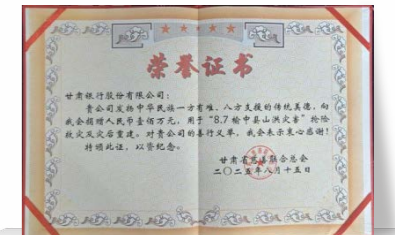 荣誉证书
甘肃银行股份有限公司：
贵公司发扬中华民族一方有难、八方支援的传统美德，向
我会捐赠人民币壹佰万元，用于“8.7榆中县山洪灾害”抢险
救灾及灾后重建。对贵公司的善行义举，我会表示衷心感谢！
特颁此证，以资纪念。
甘肃省慈善联合总会
二〇二五年八月十五日